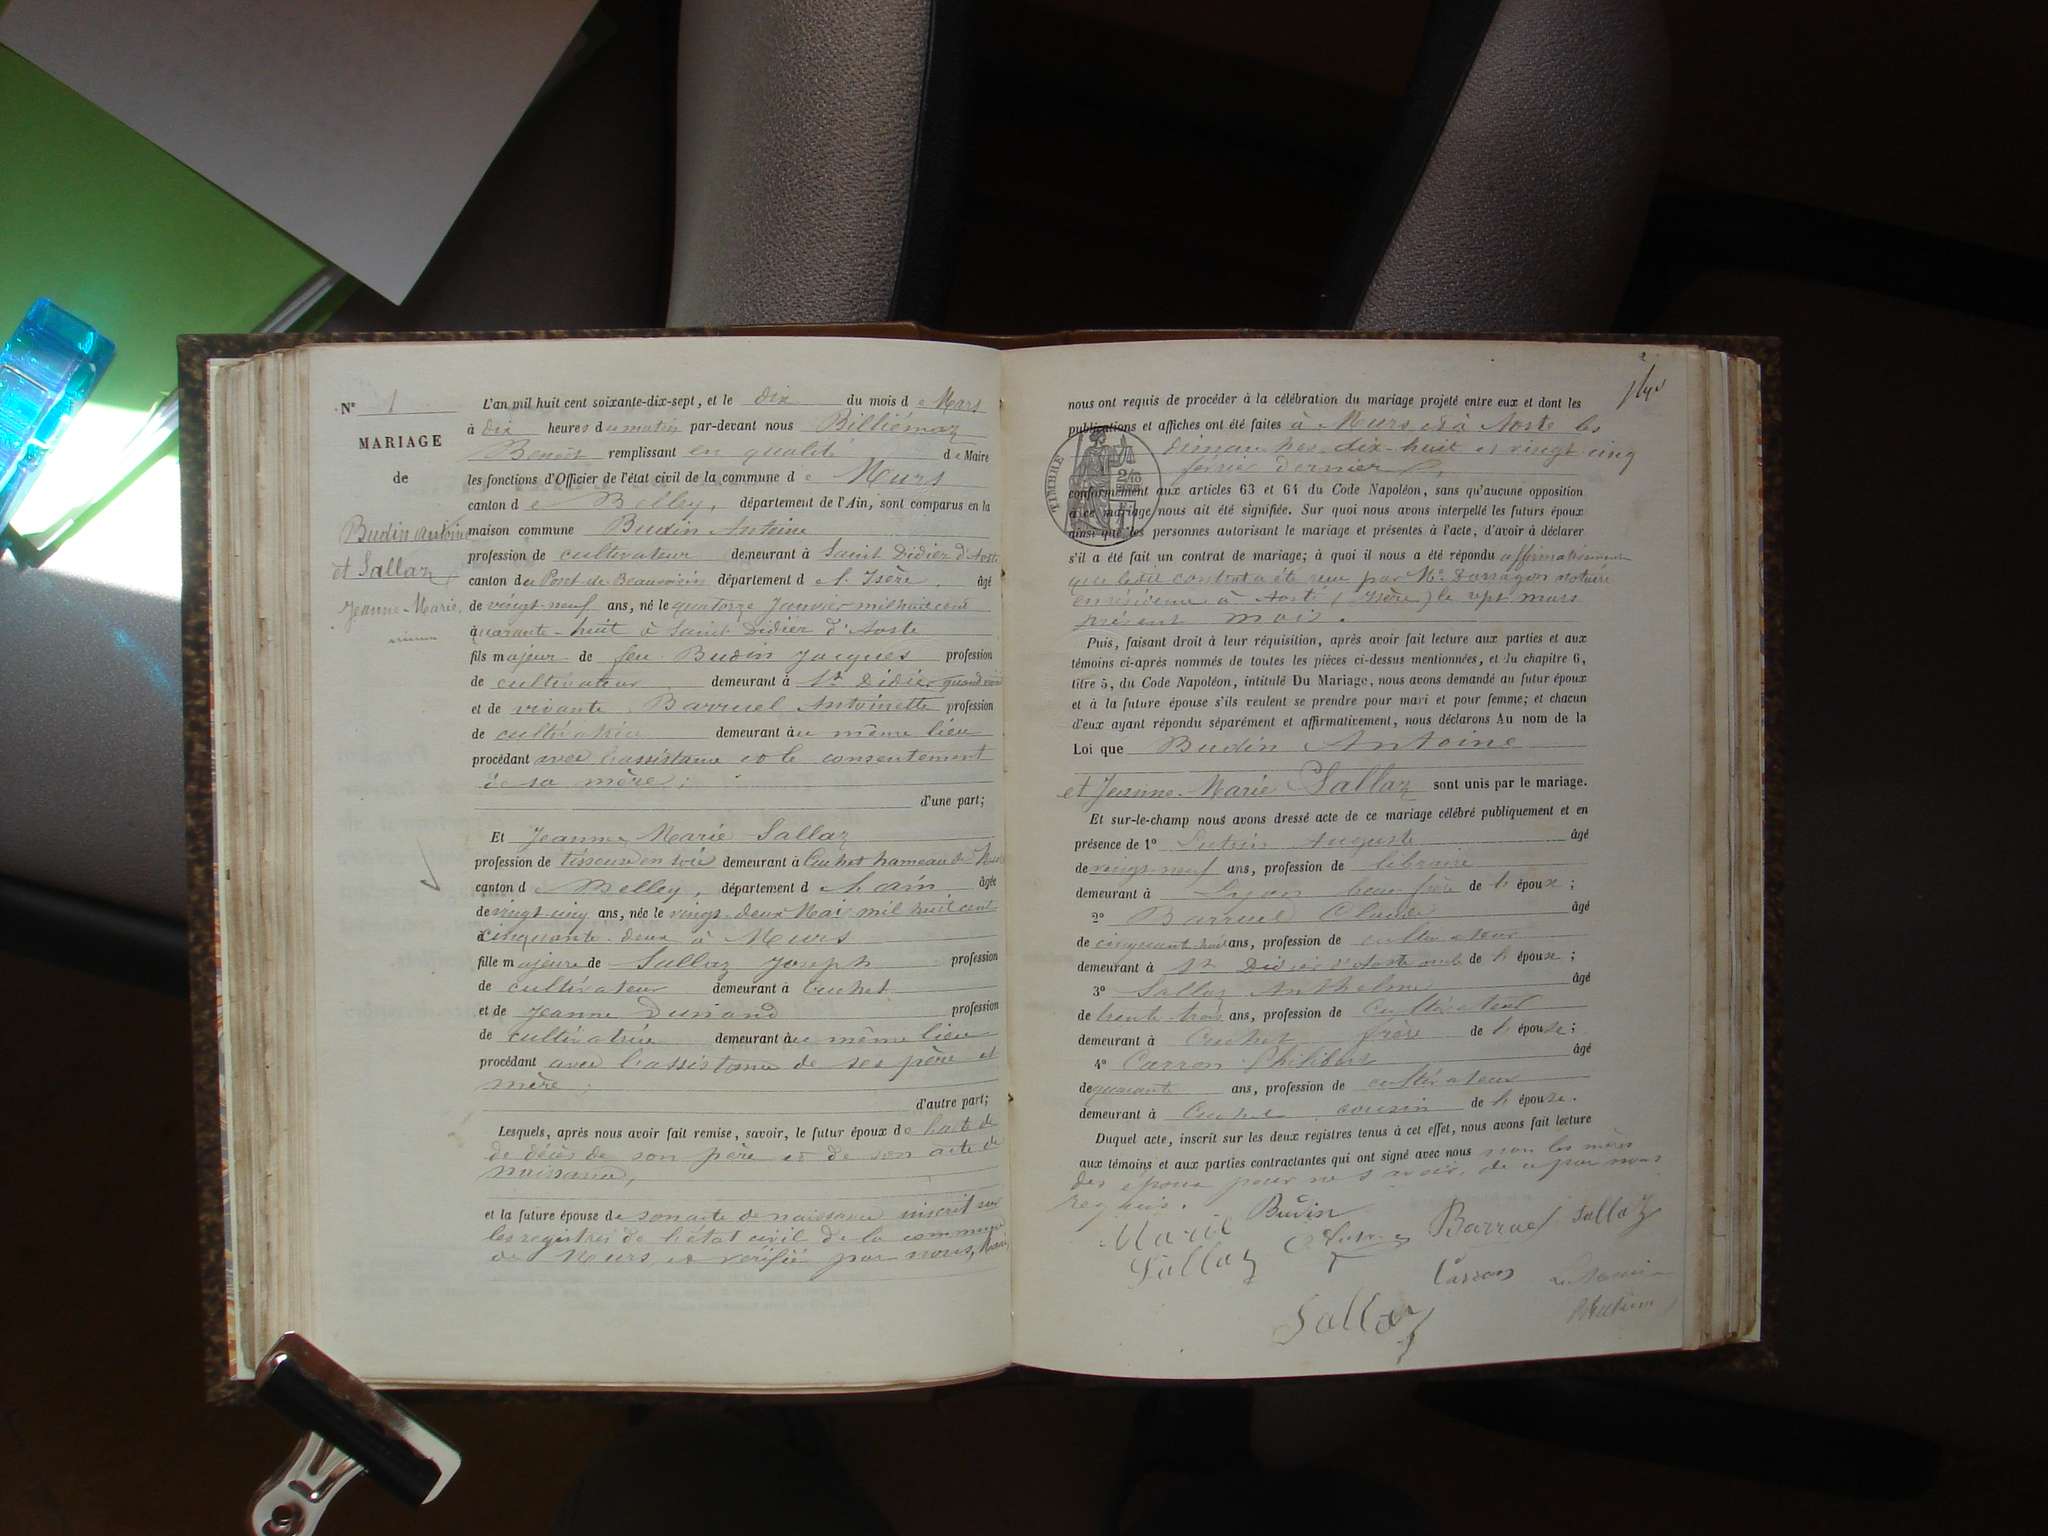 N° 1
MARIAGE
de
Budin Antoine
et Sallaz
Jeanne-Marie
L'an mil huit cent soixante-dix-sept, et le dix du mois de Mars
à dix heures du matin par-devant nous Billiémaz
Benoit remplissant en qualité de Maire
les fonctions d'Officier de l'état civil de la commune de Murs
canton de Belley, département de l'Ain, sont comparus en la
maison commune Budin Antoine
profession de cultivateur demeurant à Saint Didier d'Aoste
canton de Pont-de-Beauvoisin département de l'Isère. âgé
de vingt-neuf ans, né le quatorze Janvier mil huit cent
quarante-huit à Saint Didier d'Aoste
fils majeur de feu Budin Jacques profession
de cultivateur demeurant à St Didier quand vivait
et de vivante Barruel Antoinette profession
de cultivatrice demeurant au même lieu
procédant avec l'assistance et le consentement
de sa mère;
d'une part;
Et Jeanne Marie Sallaz
profession de tisseuse en soie demeurant à Cuchet hameau de Murs
canton de Belley, département de l'ain âgée
de vingt-cinq ans, née le vingt-deux Mai mil huit cent
cinquante-deux à Murs
fille majeure de Sallaz Joseph profession
de cultivateur demeurant à Cuchet
et de Jeanne Dunand profession
de cultivatrice demeurant au même lieu
procédant avec l'assistance de ses père et
mère;
d'autre part;
Lesquels, après nous avoir fait remise, savoir, le futur époux de l'acte de
de décès de son père et de son acte de
naissance,
et la future épouse de son acte de naissance inscrit sur
les registres de l'état civil de la commune
de Murs et vérifié par nous, Maire
nous ont requis de procéder à la célébration du mariage projeté entre eux et dont les
publications et affiches ont été faites à Murs et à Aoste les
dimanches dix-huit et vingt cinq
février dernier
TIMBRE
conformément aux articles 63 et 64 du Code Napoléon, sans qu'aucune opposition
à ce mariage nous ait été signifiée. Sur quoi nous avons interpellé les futurs époux
ainsi que les personnes autorisant le mariage et présentes à l'acte, d'avoir à déclarer
s'il a été fait un contrat de mariage; à quoi il nous a été répondu affirmativement
que ledit contrat a été reçu par Me notaire
en résidence à Aoste (Isère) le sept mars
présent mois.
Puis, faisant droit à leur réquisition, après avoir fait lecture aux parties et aux
témoins ci-après nommés de toutes les pièces ci-dessus mentionnées, et du chapitre 6,
titre 5, du Code Napoléon, intitulé Du Mariage, nous avons demandé au futur époux
et à la future épouse s'ils veulent se prendre pour mari et pour femme; et chacun
d'eux ayant répondu séparément et affirmativement, nous déclarons Au nom de la
Loi que Budin Antoine
et Jeanne-Marie Sallaz sont unis par le mariage.
Et sur-le-champ nous avons dressé acte de ce mariage célébré publiquement et en
présence de 1° Auguste âgé
de vingt-neuf ans, profession de libraire
demeurant à Lyon beau frère de l'épouse;
2° Barruel Claude âgé
de cinquante-huit ans, profession de cultivateur
demeurant à St Didier d'Aoste oncle de l'épouse;
3° Sallaz Anthelme âgé
de trente trois ans, profession de cultivateur
demeurant à Cuchet frère de l'épouse;
4° Carron Philibert âgé
de quarante ans, profession de cultivateur
demeurant à Cuchet cousin de l'épouse.
Duquel acte, inscrit sur les deux registres tenus à cet effet, nous avons fait lecture
aux témoins et aux parties contractantes qui ont signé avec nous non les mères
des époux pour ne savoir, de ce par nous
requis.
Marie Budin Barruel Sallaz
Sallaz Carron Le Maire
Sallaz